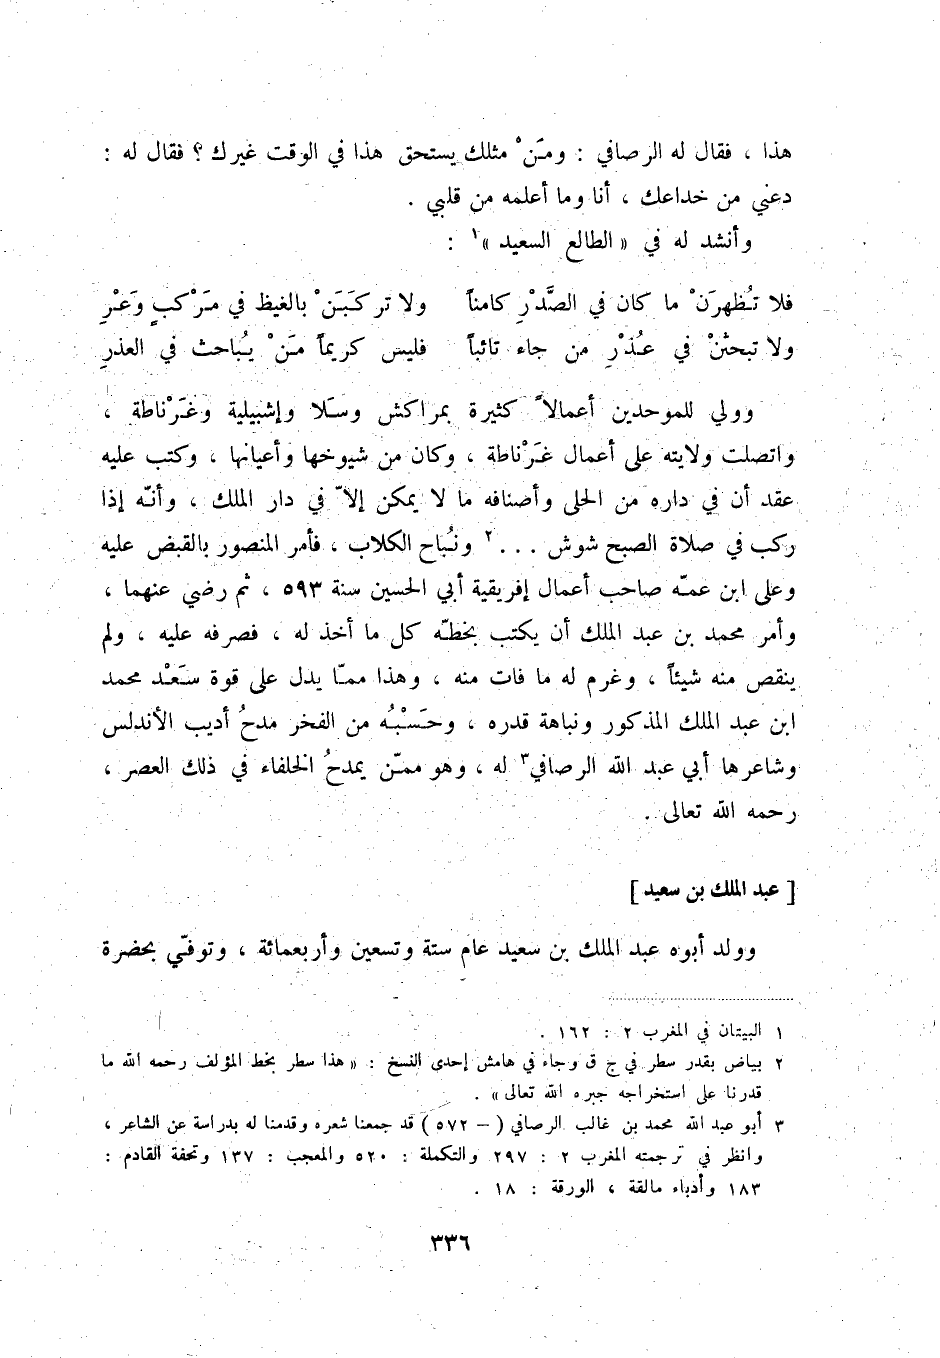 هذا ، فقال له الرصافي : ومَنْ مثلك يستحق هذا في الوقت غيرك ؟ فقال له :
دعني من خداعك ، أنا وما أعلمه من قلبي .
وأنشد له في « الطالع السعيد »١ :
فلا تُظهرَنْ ما كان في الصَّدْرِ كامناً ولا تركَبَنْ بالغيظ في مَرْكبٍ وَعْرِ
ولا تبحثنْ في عُذْرِ من جاء تائباً فليس كريماً مَنْ يُباحث في العذرِ
وولي للموحدين أعمالاً كثيرة بمراكش وسَلا وإشبيلية وغَرْناطة ،
واتصلت ولايته على أعمال غَرْناطة ، وكان من شيوخها وأعيانها ، وكتب عليه
عقد أن في داره من الحلى وأصنافه ما لا يمكن إلاّ في دار الملك ، وأنّه إذا
ركب في صلاة الصبح شوش . . . ٢ ونُباح الكلاب ، فأمر المنصور بالقبض عليه
وعلى ابن عمّه صاحب أعمال إفريقية أبي الحسين سنة ٥٩٣ ، ثم رضي عنهما ،
وأمر محمد بن عبد الملك أن يكتب بخطّه كل ما أخذ له ، فصرفه عليه ، ولم
ينقص منه شيئاً ، وغرم له ما فات منه ، وهذا ممّا يدل على قوة سَعْد محمد
ابن عبد الملك المذكور ونباهة قدره ، وحَسْبُه من الفخر مدحُ أديب الأندلس
وشاعرها أبي عبد الله الرصافي٣ له ، وهو ممّن يمدحُ الخلفاء في ذلك العصر ،
رحمه الله تعالى .
[ عبد الملك بن سعيد ]
وولد أبوه عبد الملك بن سعيد عام ستة وتسعين وأربعمائة ، وتوفّي بحضرة
١ البيتان في المغرب ٢ : ١٦٢ .
٢ بياض بقدر سطر في ج ق وجاء في هامش إحدى النسخ : « هذا سطر بخط المؤلف رحمه الله ما
قدرنا على استخراجه جبره الله تعالى » .
٣ أبو عبد الله محمد بن غالب الرصافي ( - ٥٧٢ ) قد جمعنا شعره وقدمنا له بدراسة عن الشاعر ،
وانظر في ترجمته المغرب ٢ : ٢٩٧ والتكملة : ٥٢٠ والمعجب : ١٣٧ وتحفة القادم :
١٨٣ وأدباء مالقة ، الورقة : ١٨ .
٣٣٦